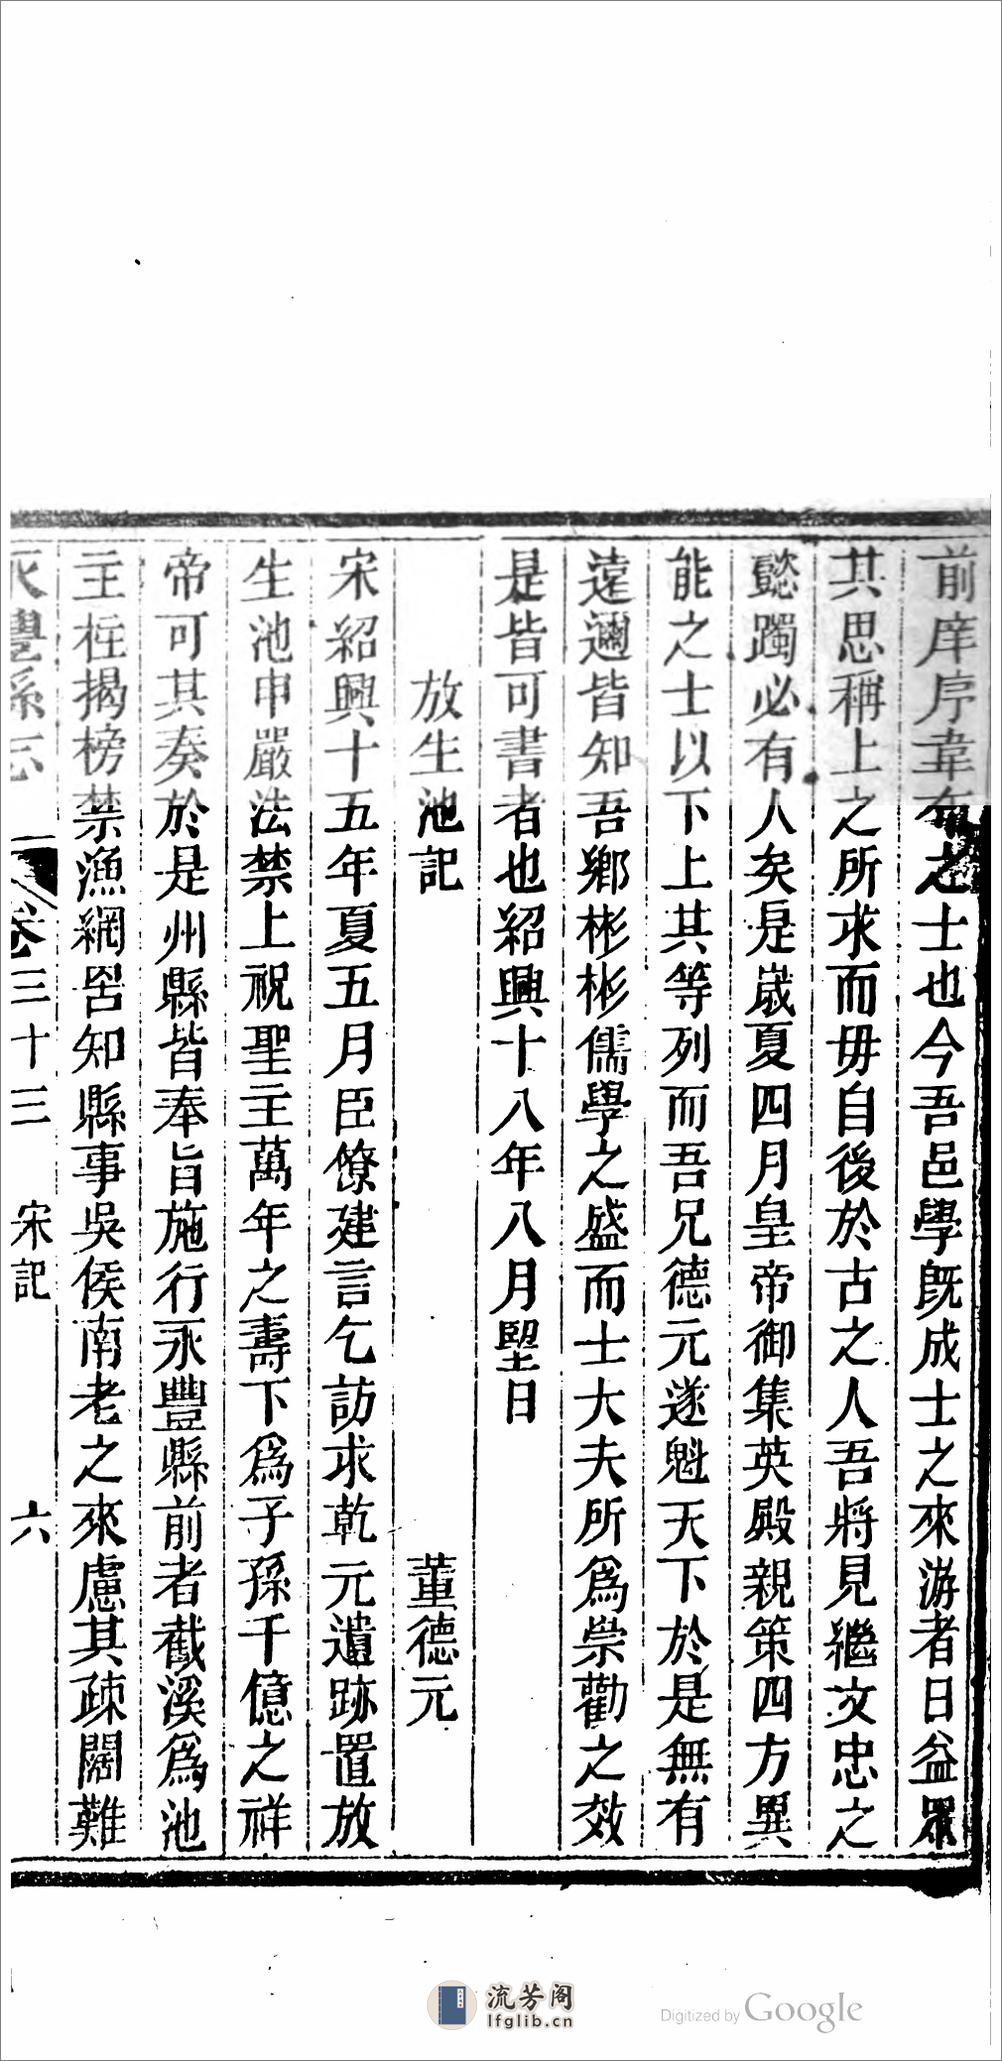 前庠序韋布之士也今吾邑學旣成士之來游者日益眾
其思稱上之所求而毋自後於古之人吾將見繼文忠之
懿躅必有人矣是嵗夏四月皇帝御集英殿親策四方異
能之士以下上其等列而吾兄德元遂魁天下於是無有
遠邇皆知吾鄉彬彬儒學之盛而士大夫所爲崇勸之效
是皆可書者也紹興十八年八月朢日
放生池記
董德元
宋紹興十五年夏五月臣僚建言乞訪求乾元遺跡置放
生池申嚴法禁上祝聖主萬年之壽下爲子孫千億之祥
帝可其奏於是州縣皆奉旨施行永豐縣前者截溪爲池
主枉揭榜禁漁網罟知縣事吳侯南老之來慮其疎闊難
永豐縣志
卷三十三
宋記
六
流芳阁
lfglib.cn
Digitized by Google